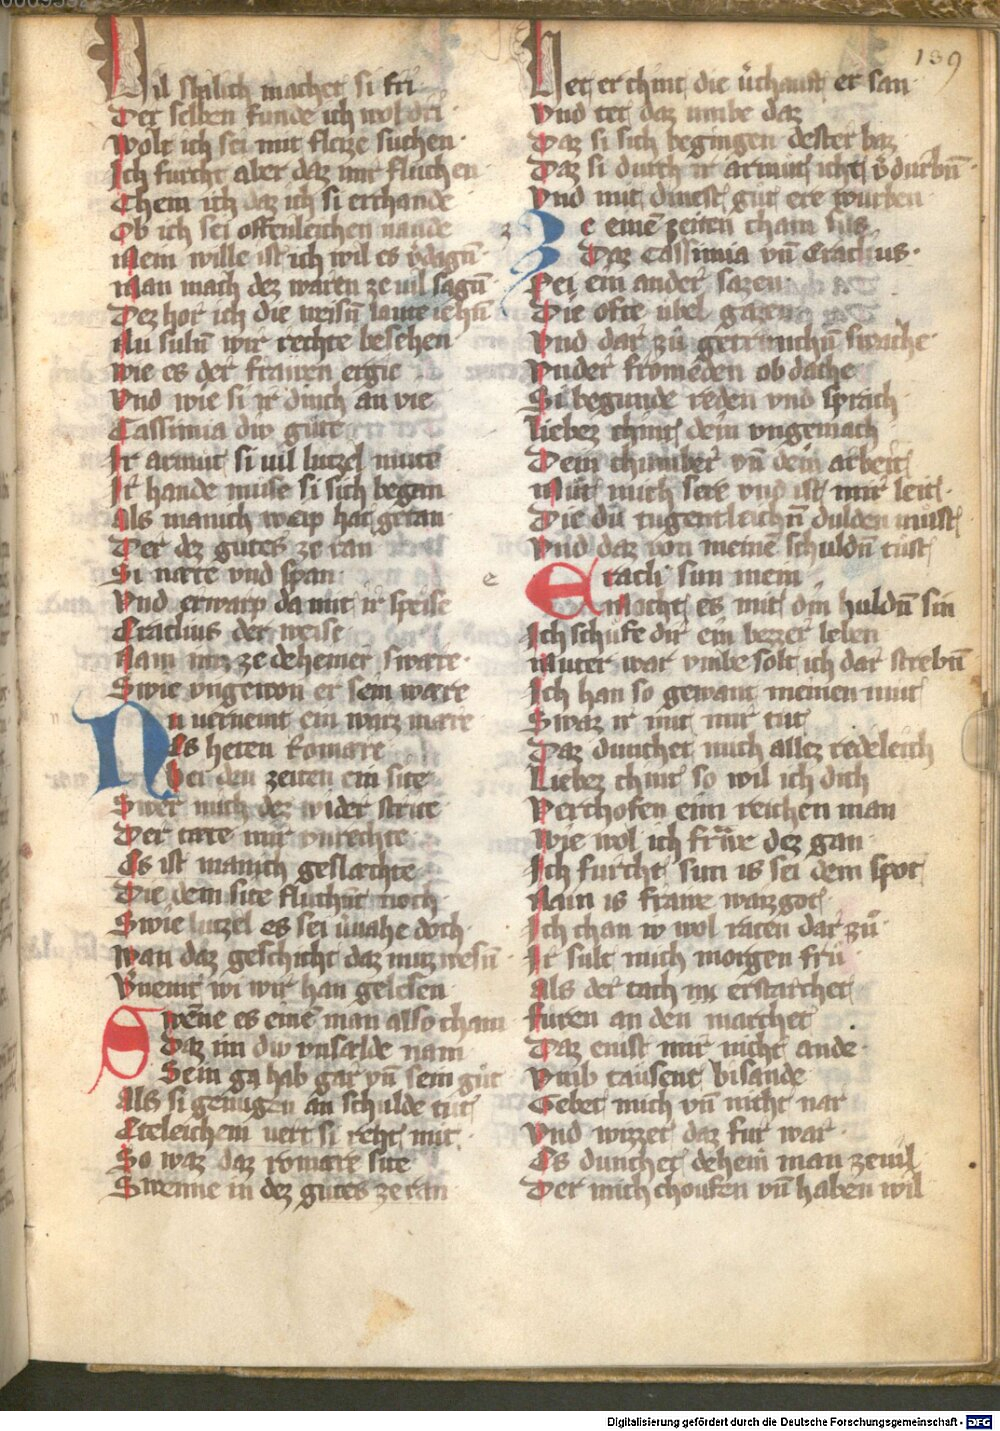 139
Vil shilich machet si fri
Der selben funde ich wol dri
Wolt ich sei mit fleize suchen
Ich furcht aber daz mir fluchen
Them ich daz ich si erchande
Ob ich sei offenleichen nande
Mein wille ist ich wil es v̄dagn̄
Man mach dez waren ze uil sagn̄
Dez hor ich die weisn̄ laute iehn̄
Nu suln̄ wir rechte besehen
Wie es der frawen ergie
Vnd wie si ir dinch an vie
Cassinia diw gute
Ir armut si uil lutzel mute
Ir hande muse si sich began
Als manich weip hat getan
Der dez gutes ze ran
Si nære vnd span
Vnd erwarp da mit ir speise
Eraclius der weise
Nam im ze deheiner swære
Swie vngewon er sein wære
Nu uernemt ein warz mære
Es heten Romære
Bei den zeiten ein site
Swer mich dez wider strite
Der tæte mir vnrechte
Es ist manich geslæchte
Die dem site fluchn̄t noch
Swie lutzel es sei v̄nahe doch
Wan daz geschicht daz muz wesn̄
V̄nemt wi wir han gelesen
Swēne es einē man also cham
Daz im diw vnsælde nam
Sein ga hab gar vn̄ sein gut
Als si genugen an schulde tut
Eteleichem uert si reht mit
So waz daz romære site
Swenne in dez gutes ze ran
Het er chint die v̄chauft er san
Vnd tet daz umbe daz
Daz si sich begingen dester baz
Daz si durch ir armut icht v̄durbn̄
Vnd mit dinest gut ere wurben
Ze einē zeiten cham sus
Daz Cassinia vn̄ Eraclius
Bei ein ander sazen
Die ofte ubel gazen
Vnd dar zu getrunchn̄ swache
Vnder frōmeden obdache
Si begunde reden vnd sprach
Liebez chint dein vngemach
Dein chumber vn̄ dein arbeit
Mut mich sere vnd ist mir leit
Die du tugentleichn̄ dulden must
Vnd daz von meinē schuldn̄ tust
Eracli sun mein
Mocht es mit din huldn̄ sin
Ich schufe dir ein bezzer leben
Muter war vmbe solt ich dar strebn̄
Ich han so gewant meinen mut
Swaz ir mit mir tut
Daz dunchet mich allez redeleich
Liebez chint so wil ich dich
Verchofen eim reichen man
Wie wol ich frawe dez gan
Ich furcht sun is sei dem spot
Nain is frawe waizgot
Ich chan iv wol raten dar zu
Ir sult mich morgen fru
Als der tach in erstarchet
Furen an den marchet
Daz enist mir nicht ande
Vmb tausent bisande
Gebet mich vn̄ nicht nar
Vnd wizzet daz fur war
Es dunchet dehein man zeuil
Der mich choufen vn̄ haben wil
Digitalisierung gefördert durch die Deutsche Forschungsgemeinschaft - DFG